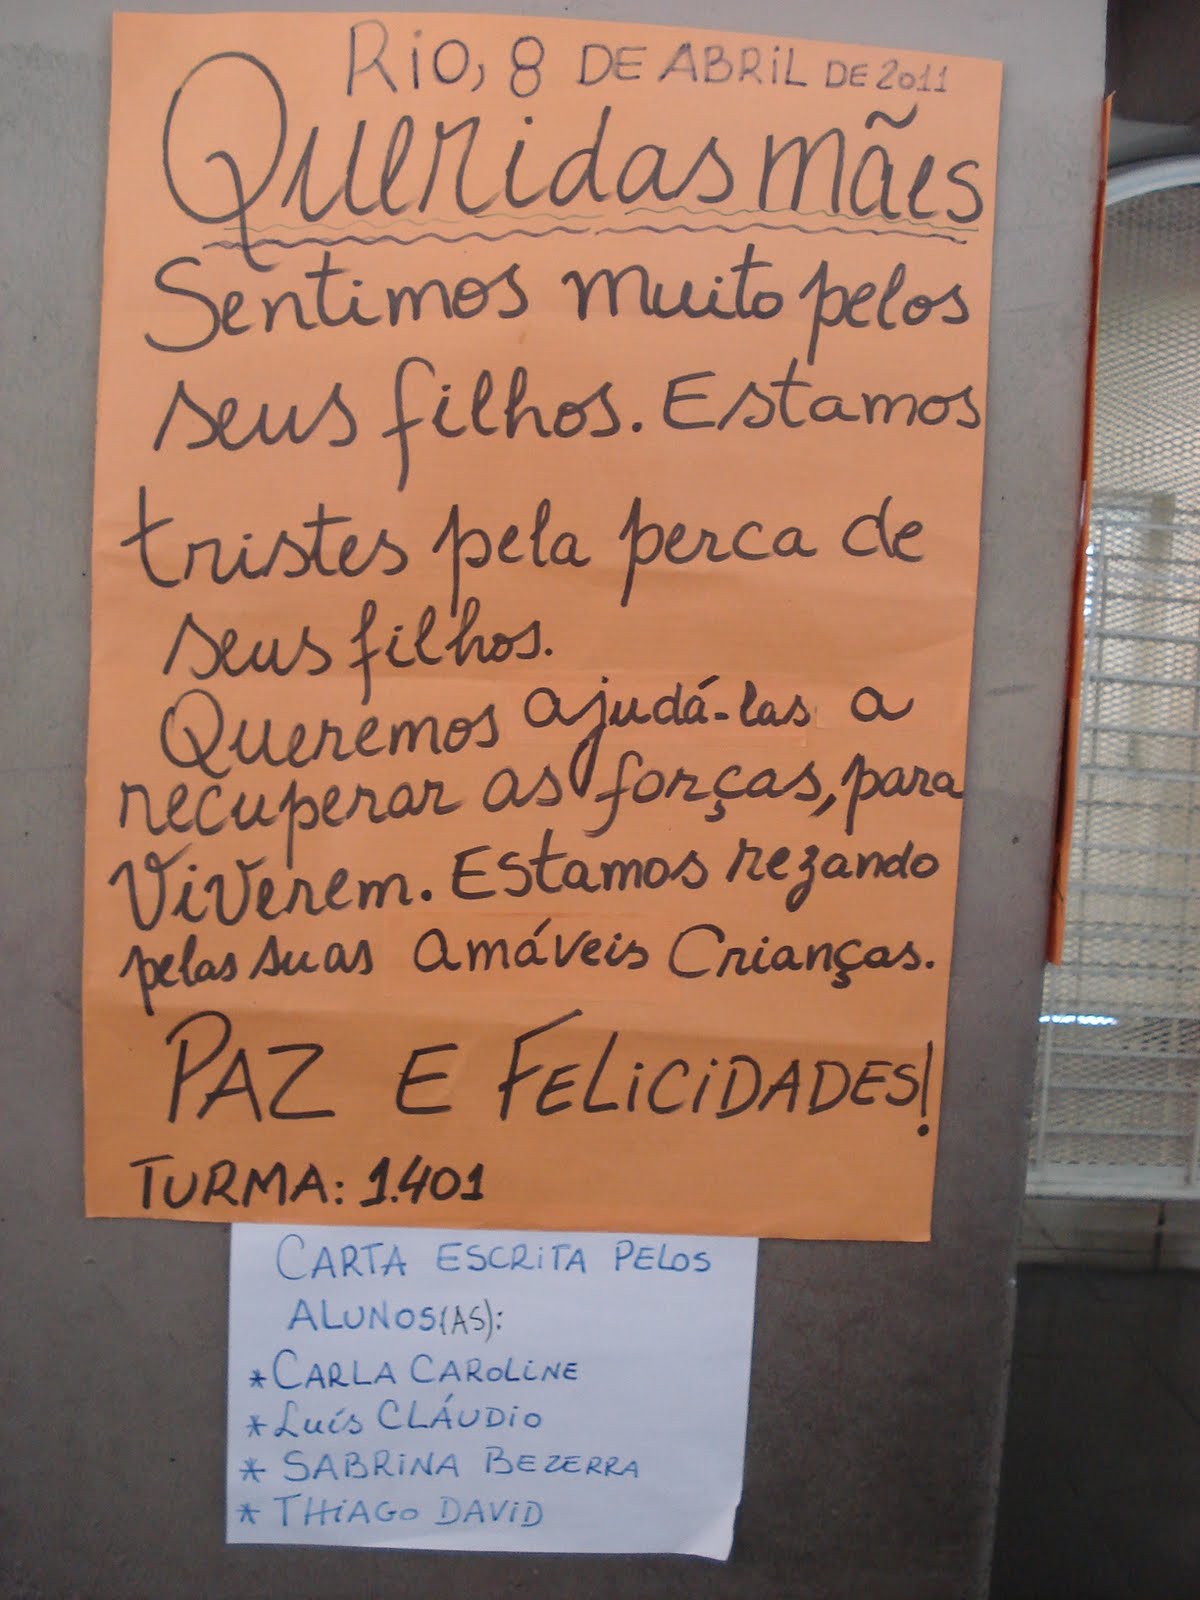 Rio, 8 DE ABRIL DE 2011
Queridas mães
Sentimos muito pelos
seus filhos. Estamos
tristes pela perca de
seus filhos.
Queremos ajudá-las a
recuperar as forças, para
Viverem. Estamos rezando
pelas suas amáveis Crianças.
PAZ E FELICIDADES!
TURMA: 1.401
CARTA ESCRITA PELOS
ALUNOS(AS):
* CARLA CAROLINE
* Luís CLÁUDIO
* SABRINA BEZERRA
* THIAGO DAVID